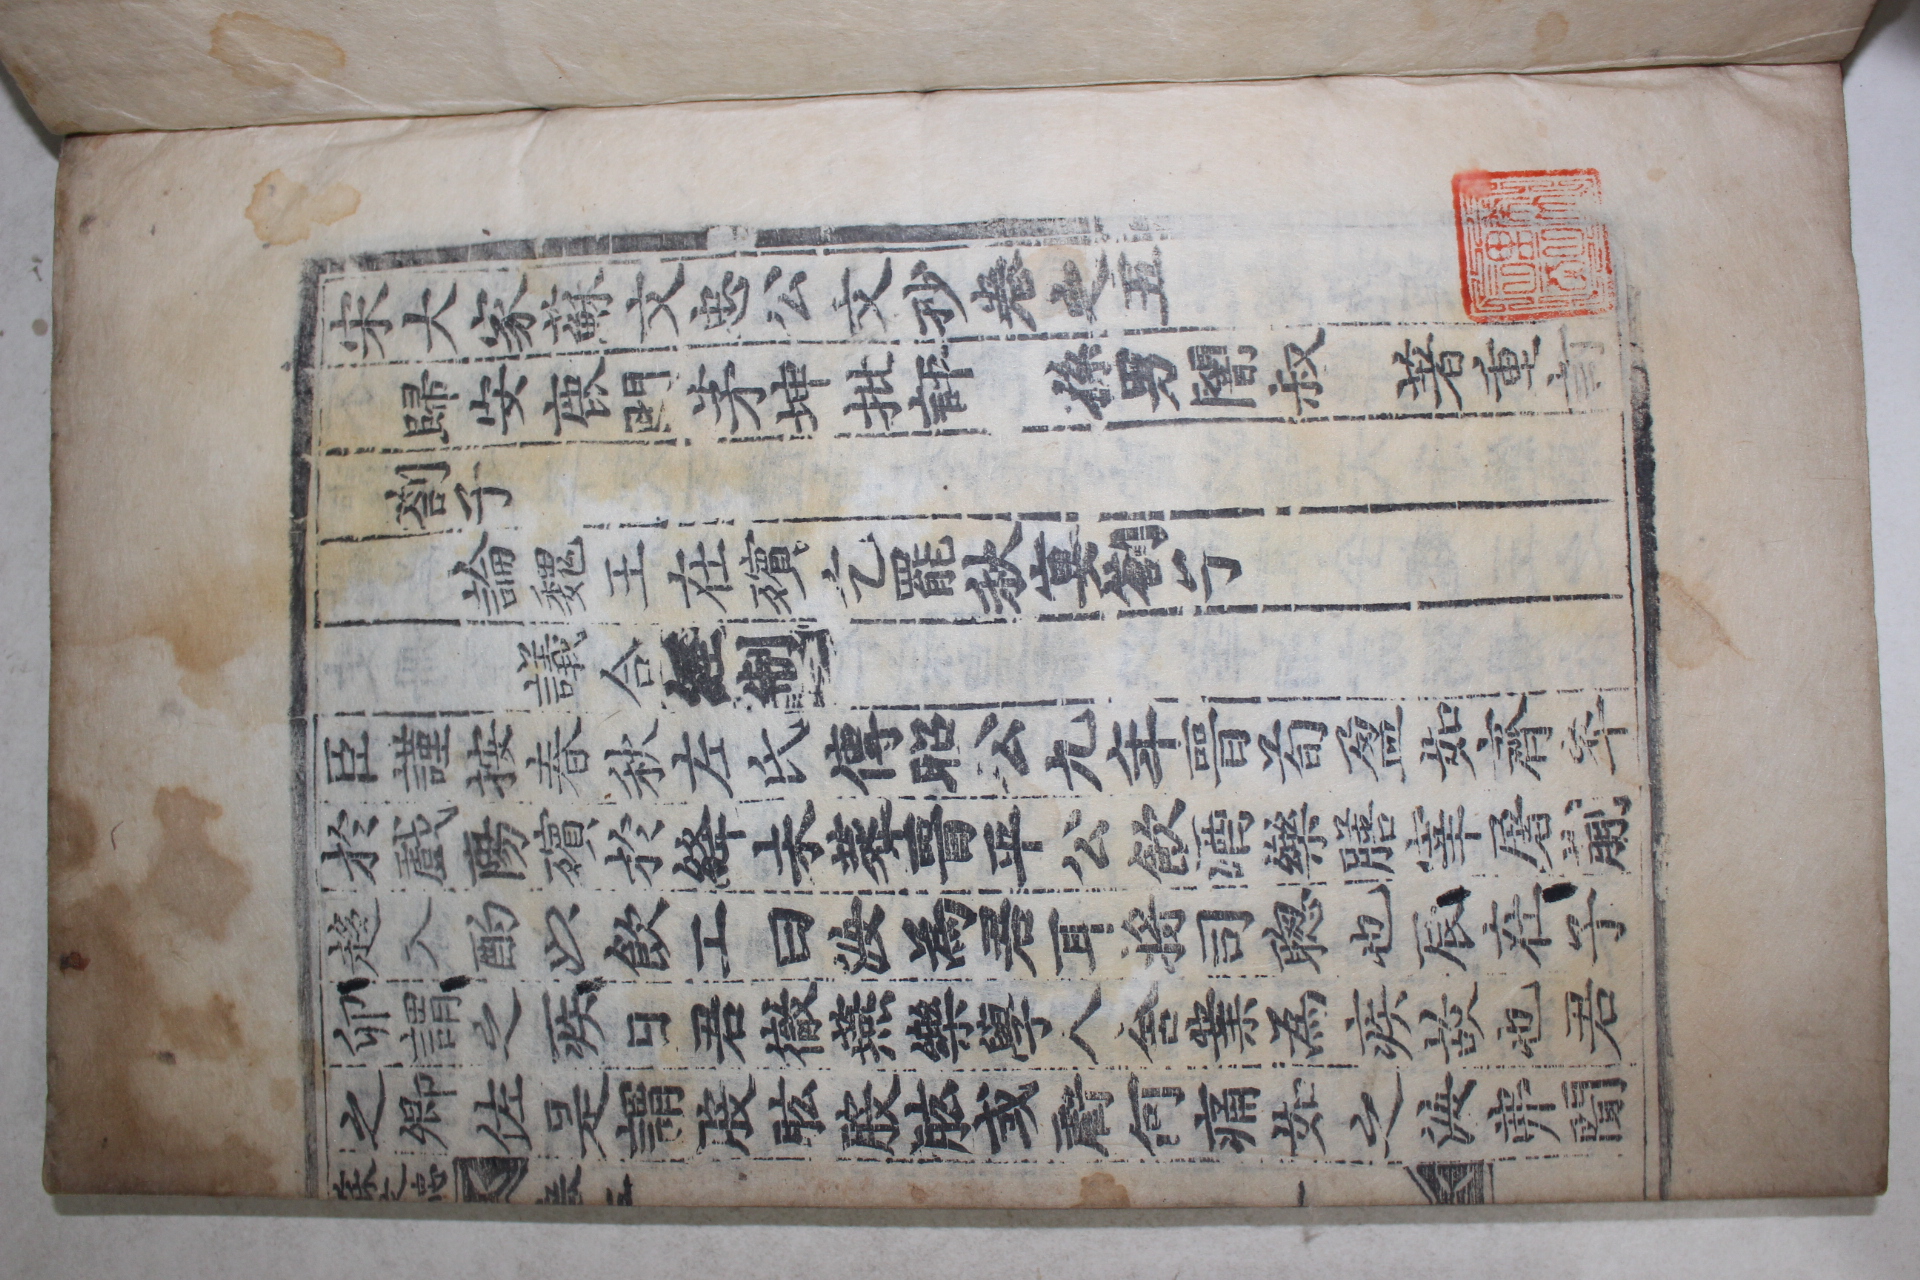 宋大家蘇文忠公文抄卷之五
歸安鹿門茅坤批評　孫男闇叔　著重訂
劄子
論魏王在殯乞罷秋宴劄子
議合經制
臣謹按春秋左氏傳昭公九年晉荀盈如齊卒
於戲陽殯於絳未葬晉平公飲酒樂膳宰屠蒯
趨入酌以飲工曰汝為君耳將司聰也辰在子
卯謂之疾日君徹燕樂學人舍業為疾故也君
之卿佐是謂股肱股肱或虧何痛如之汝弗聞